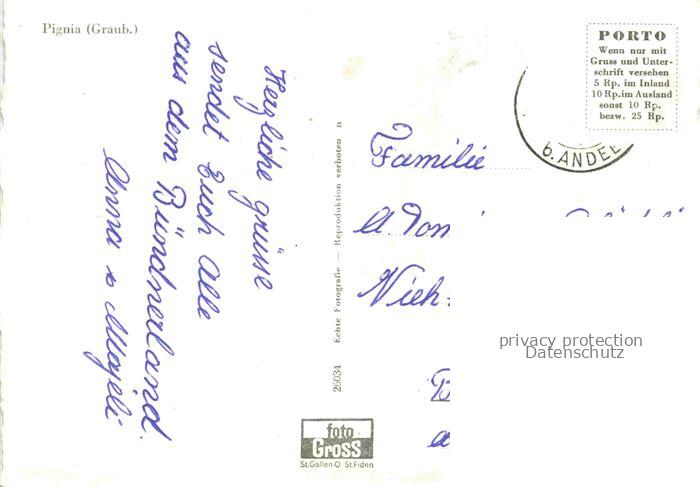 Pignia (Graub.)
Herzliche grüsse
sendet Euch Alle
aus dem Bündnerland.
Anna &
26034 Echte Fotografie — Reproduktion verboten n
foto
GROSS
St. Gallen O St. Fiden
PORTO
Wenn nur mit
Gruss und Unter-
schrift versehen
5 Rp. im Inland
10 Rp. im Ausland
sonst 10 Rp.
bezw. 25 Rp.
b. ANDEE
Familie
A. Don
Vieh:
privacy protection
Datenschutz